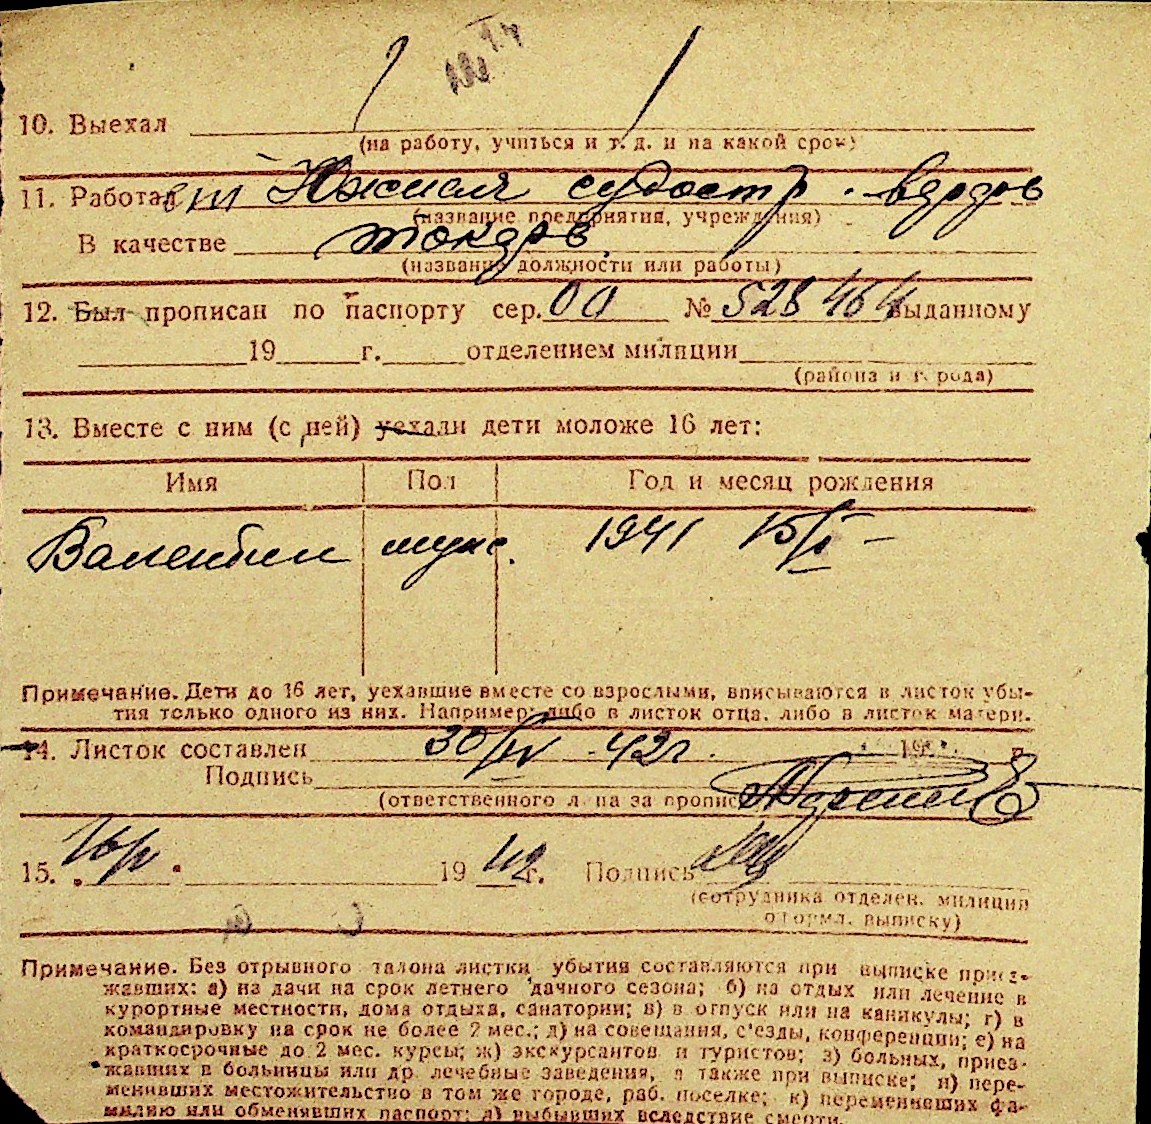 10. Выехал
(на работу, учиться и т. д. и на какой срок)
11. Работал судостр.
(название предприятия, учреждения)
В качестве токарь
(название должности или работы)
12. Был прописан по паспорту сер. № 528 464 выданному
19 г. отделением милиции
(района и города)
13. Вместе с ним (с ней) уехали дети моложе 16 лет:
Имя Пол Год и месяц рождения
Валентин муж. 1941 15/I –
Примечание. Дети до 16 лет, уехавшие вместе со взрослыми, вписываются в листок убы-
тия только одного из них. Например: либо в листок отца, либо в листок матери.
14. Листок составлен 30/IV - 42 г. 19 г.
Подпись
(ответственного лица за прописку
15. 19 42 г. Подпись
(сотрудника отделен. милиции
оформл. выписку)
Примечание. Без отрывного талона листки убытия составляются при выписке приез-
жавших: а) из дачи на срок летнего дачного сезона; б) на отдых или лечение в
курортные местности, дома отдыха, санатории; в) в отпуск или на каникулы; г) в
командировку на срок не более 2 мес.; д) на совещания, с'езды, конференции; е) на
краткосрочные до 2 мес. курсы; ж) экскурсантов и туристов; з) больных, приез-
жавших в больницы или др. лечебные заведения, а также при выписке; и) пере-
менивших местожительство в том же городе, раб. поселке; к) переменивших фа-
милию или обменявших паспорт; л) выбывших вследствие смерти.